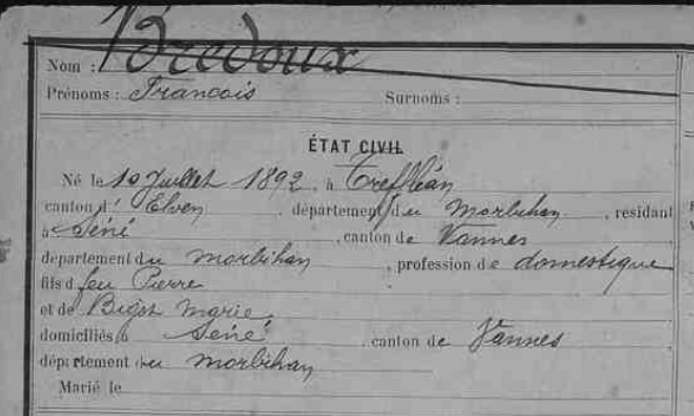 Nom : Bredoux
Prénoms : Francois Surnoms :
ÉTAT CIVIL
Né le 10 Juillet 1892, à Treffléan
canton d' Elven, département du Morbihan, résidant
à Séné, canton de Vannes
département du morbihan, profession de domestique
fils d feu Pierre
et de Bigot Marie
domiciliés à Séné canton de Vannes
département du morbihan
Marié le